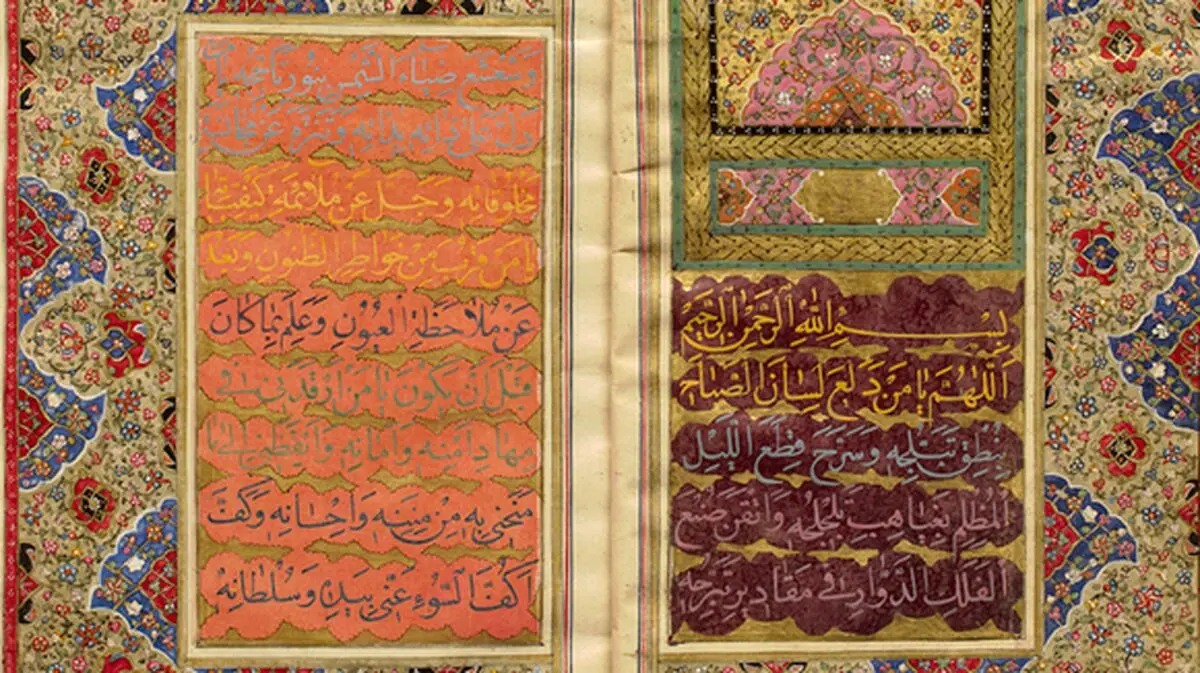 بِسْمِ اللهِ الرَّحْمٰنِ الرَّحِيمِ
اَللّٰهُمَّ يَا مَنْ دَلَعَ لِسَانَ الصَّبَاحِ
بِنُطْقِ تَبَلُّجِهِ وَسَرَّحَ قِطَعَ اللَّيْلِ
الْمُظْلِمِ بِغَيَاهِبِ تَلَجْلُجِهِ وَاَتْقَنَ صُنْعَ
الْفَلَكِ الدَّوَّارِ فِى مَقَادِيرِ تَبَرُّجِهِ
وَشَعْشَعَ ضِيَاءَ الشَّمْسِ بِنُورِ تَاَجُّجِهِ يَا مَنْ
دَلَّ عَلٰى ذَاتِهِ بِذَاتِهِ وَتَنَزَّهَ عَنْ مُجَانَسَةِ
مَخْلُوقَاتِهِ وَجَلَّ عَنْ مُلَائَمَةِ كَيْفِيَّاتِهِ
يَا مَنْ قَرُبَ مِنْ خَوَاطِرِ الظُّنُونِ وَبَعُدَ
عَنْ مُلَاحَظَةِ الْعُيُونِ وَعَلِمَ بِمَا كَانَ
قَبْلَ اَنْ يَكُونَ يَا مَنْ اَرْقَدَنِى فِى
مِهَادِ اَمْنِهِ وَاَمَانِهِ وَاَيْقَظَنِى اِلٰى مَا
مَنَحَنِى بِهِ مِنْ مِنَنِهِ وَاِحْسَانِهِ وَكَفَّ
اَكُفَّ السُّوءِ عَنِّى بِيَدِهِ وَسُلْطَانِهِ